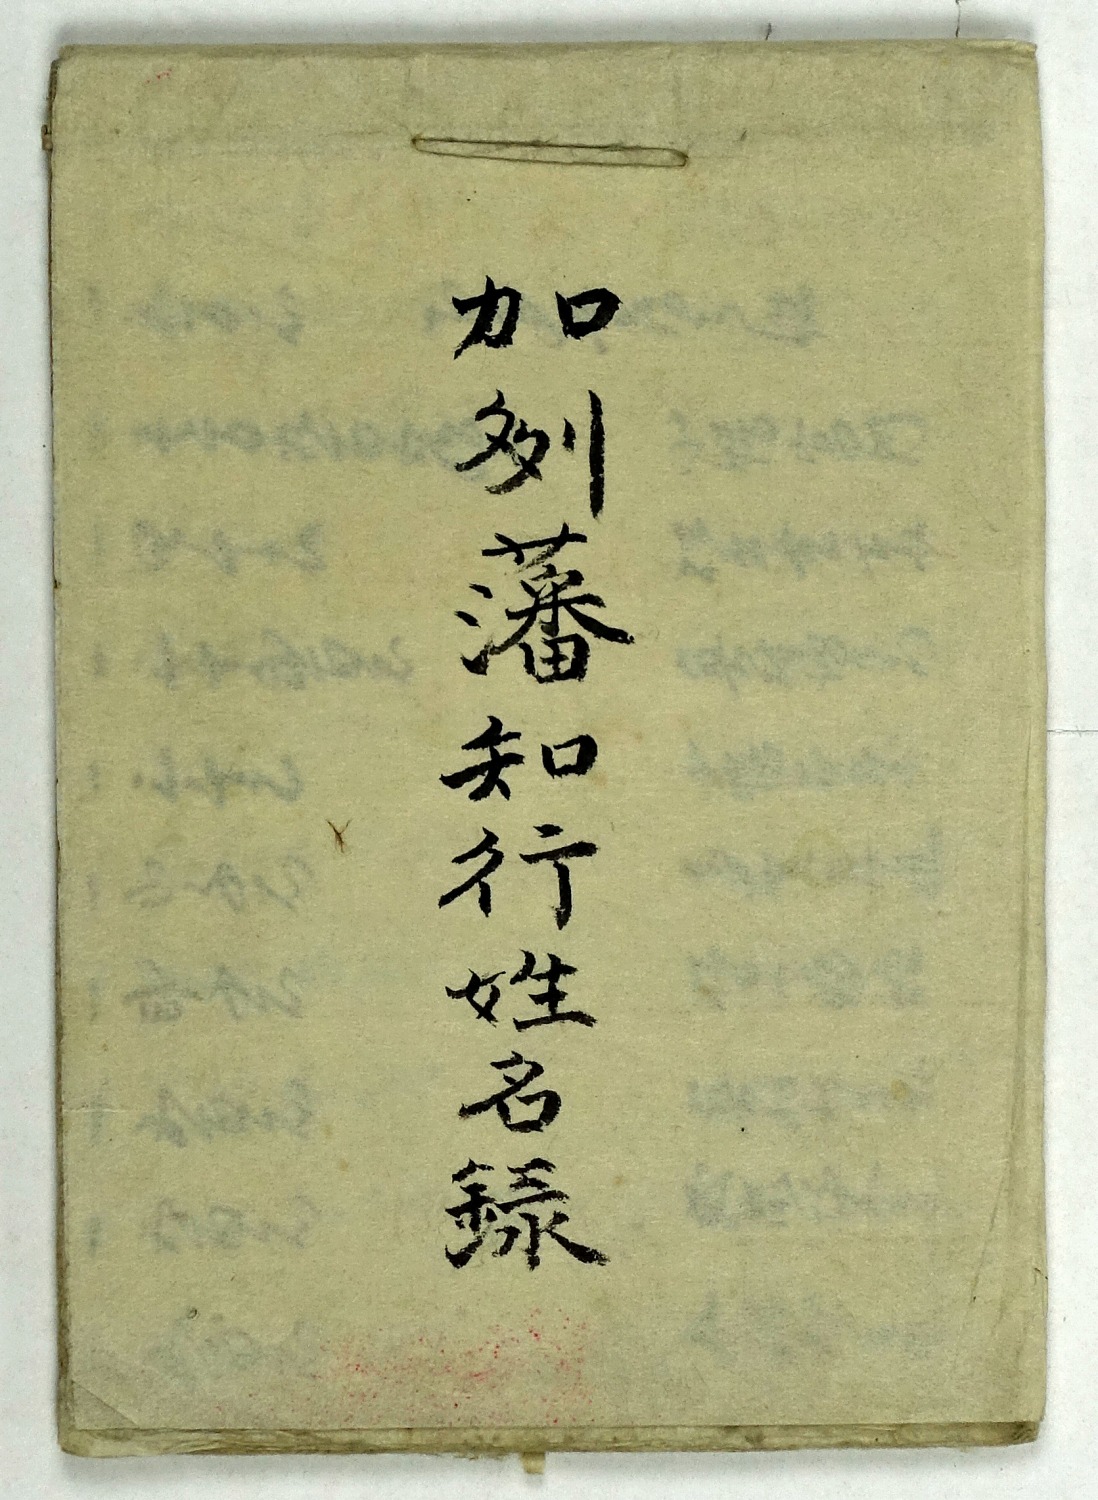 加州藩知行姓名録